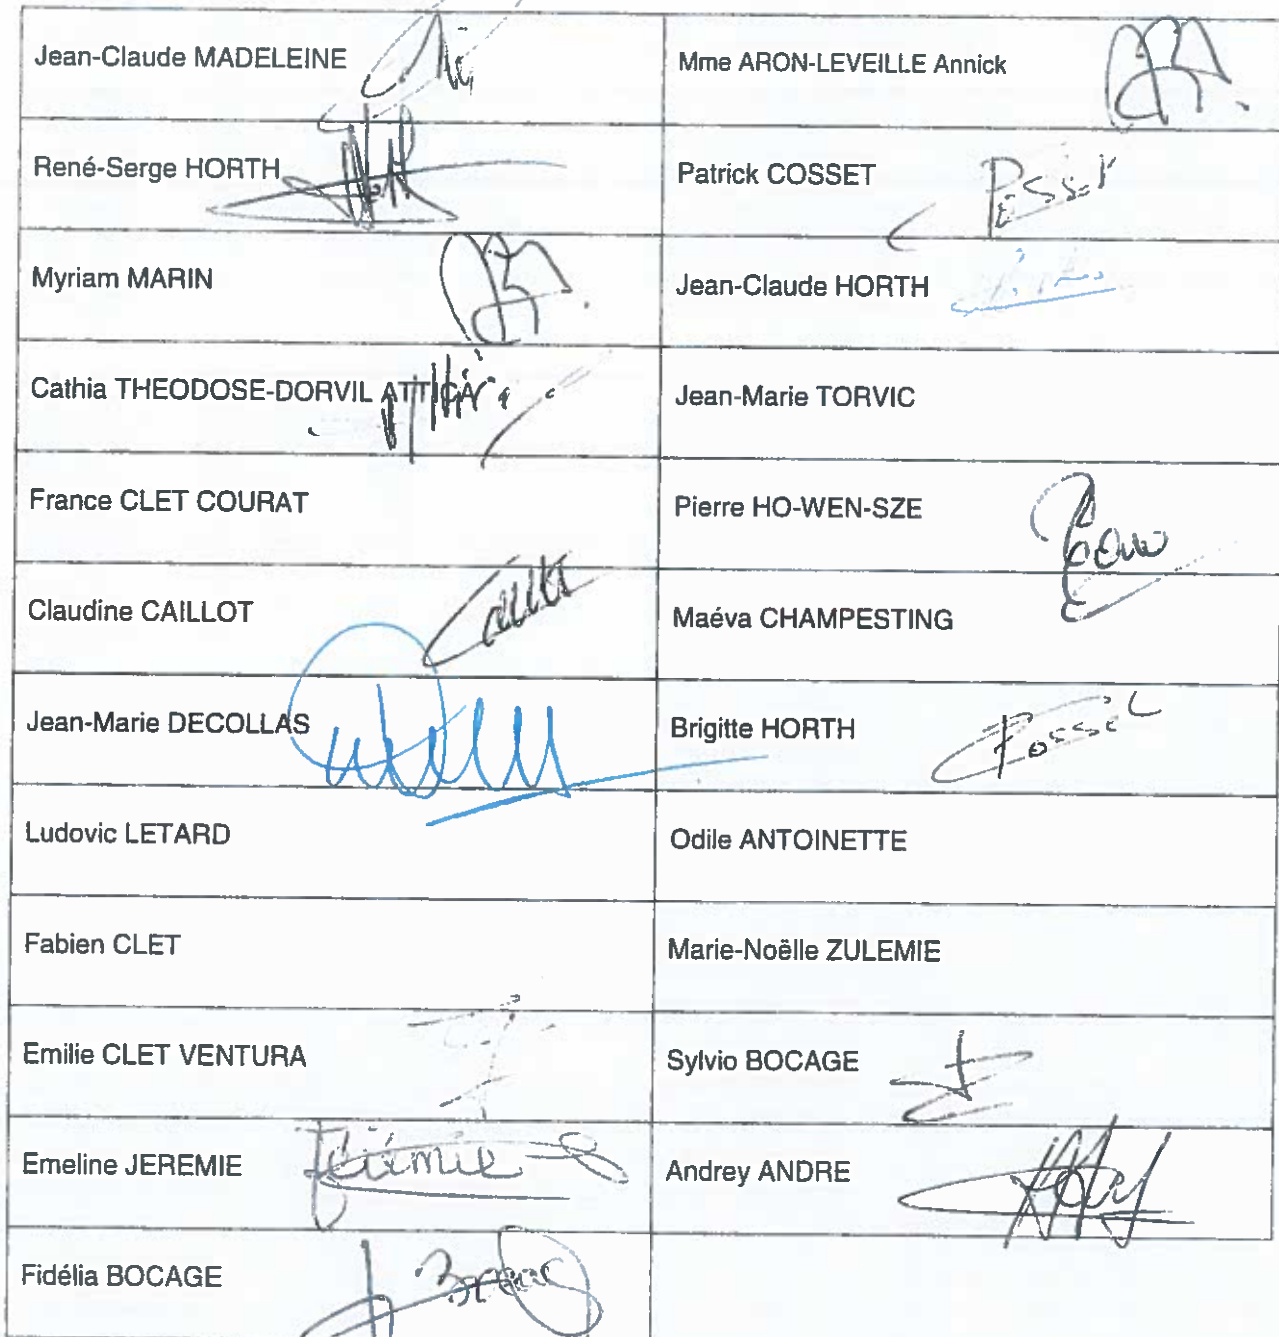 Jean-Claude MADELEINE
Mme ARON-LEVEILLE Annick
René-Serge HORTH
Patrick COSSET
Myriam MARIN
Jean-Claude HORTH
Cathia THEODOSE-DORVIL ATTICA
Jean-Marie TORVIC
France CLET COURAT
Pierre HO-WEN-SZE
Claudine CAILLOT
Maéva CHAMPESTING
Jean-Marie DECOLLAS
Brigitte HORTH
Ludovic LETARD
Odile ANTOINETTE
Fabien CLET
Marie-Noëlle ZULEMIE
Emilie CLET VENTURA
Sylvio BOCAGE
Emeline JEREMIE
Jérémie
Andrey ANDRE
Fidélia BOCAGE